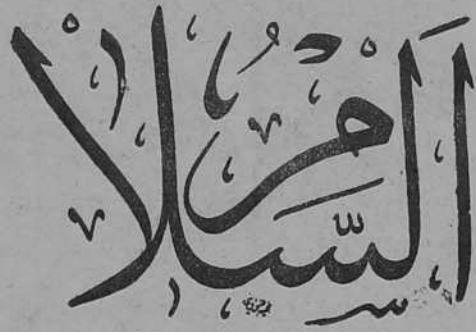 اَلسَّلام